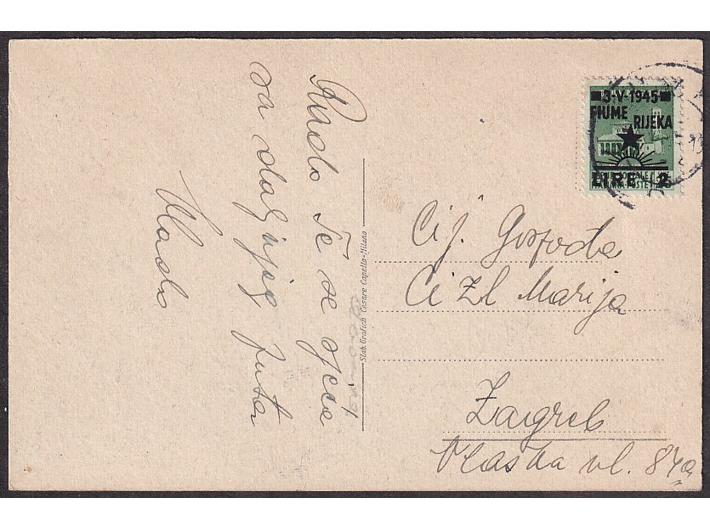 Rado Te se sjeća
sa daljnjeg puta
Vlado
Stab. Grafico Cesare Capello - Milano
3-V-1945
FIUME
RIJEKA
LIRE 2
Cij. Gospođa
Cizl Marija
Zagreb
Vlaška ul. 84a